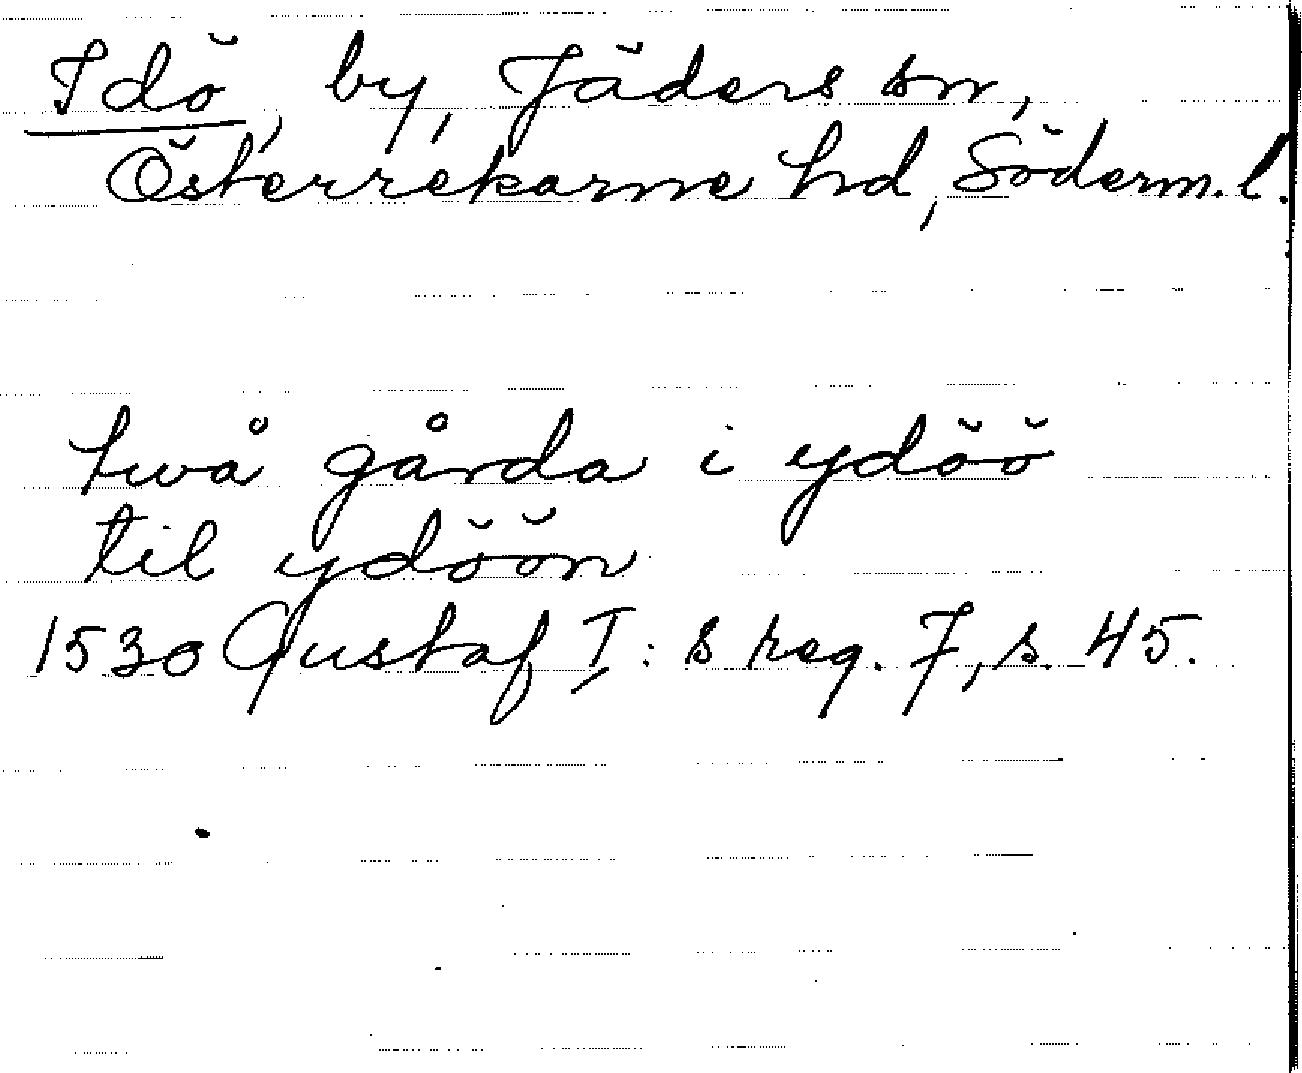 Idö, by, Jäders sn,
Österrekarne hd, Söderm. l.
två gårda i ydöö
til ydöön
1530 Gustaf I:s reg. 7, s. 45.